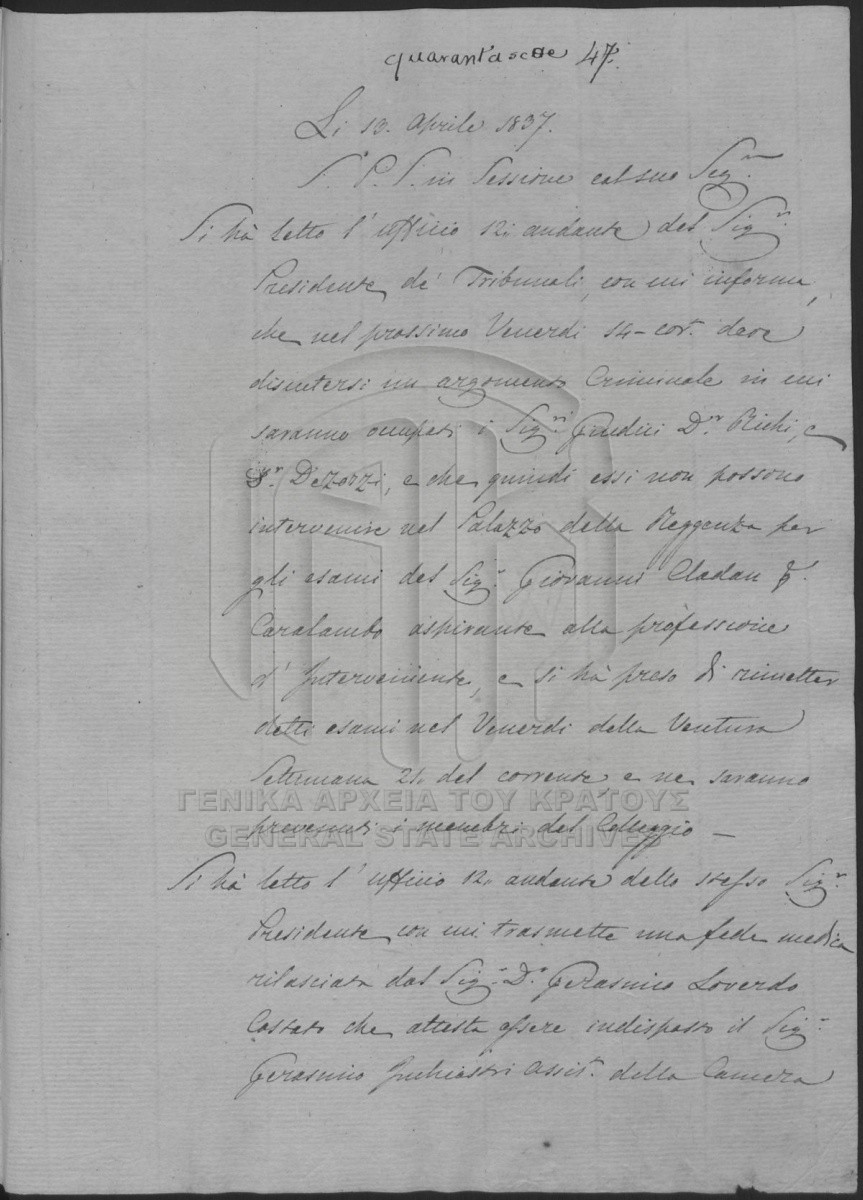 quarantasette 47.
Li 13. Aprile 1837.
S. P. S. in Sessione col suo Sigr.
Si hà letto l' ufficio 12. andante del Sigr.
Presidente de' Tribunali, con cui informa,
che nel prossimo Venerdi 14 cort. deve
discutersi un argomento Criminale in cui
saranno occupati i Sigri Giudici Dr. Richi, e
Sr. Dezorzi, e che quindi essi non possono
intervenire nel Palazzo della Reggenza per
gli esami del Sigr. Giovanni Cladan
Caralambo aspirante alla professione
d' Interveniente, e si hà preso di rimetter
detti esami nel Venerdi della Ventura
Settimana 21. del corrente e ne saranno
prevenuti i membri del Colleggio —
ΓΕΝΙΚΑ ΑΡΧΕΙΑ ΤΟΥ ΚΡΑΤΟΥΣ
GENERAL STATE ARCHIVES
Si hà letto l' ufficio 12. andante dello stesso Sigr.
Presidente con cui trasmette una fede medica
rilasciata dal Sigr. Dr. Gerasimo Loverdo
Costato che attesta essere indisposto il Sigr.
Gerasimo Inchiostri Assit. della Camera